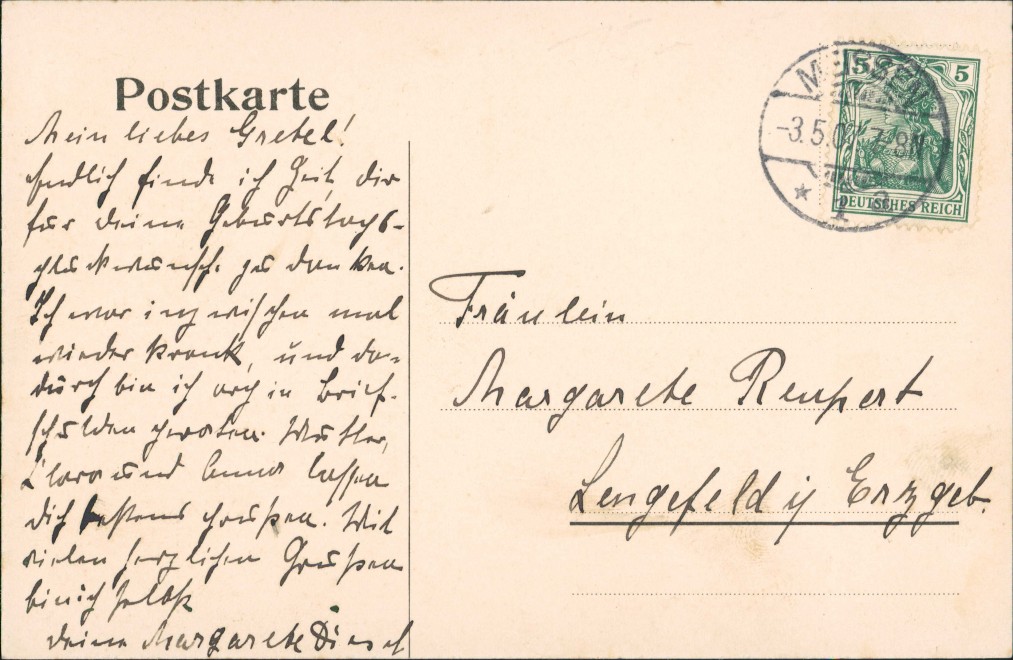 Postkarte
Mein liebes Gretel!
Endlich finde ich Zeit, dir
für deine Geburtstags-
glückwünsche zu danken.
Ich war inzwischen mal
wieder krank, und da-
durch bin ich arg in Brief-
schulden geraten. Mutter,
Clara und Anna lassen
dich bestens grüßen. Mit
vielen herzlichen Grüßen
bin ich selbst
deine Margarete
MEISSEN
-3.5.07 7-8N
* 1
5 5
DEUTSCHES REICH
Fräulein
Margarete Reupert
Lengefeld i/ Erzgeb.